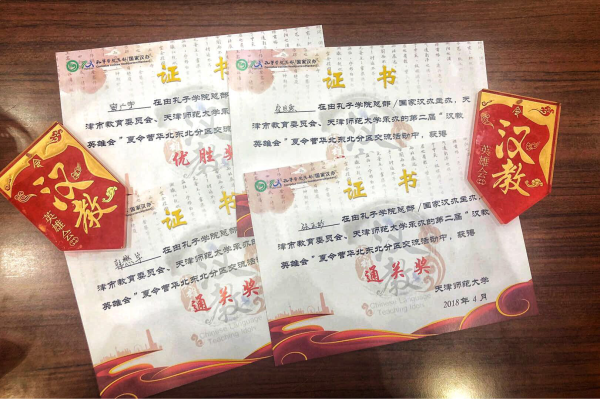 孔子学院总部/国家汉办
证书
在由孔子学院总部
津市教育委员会、天津师范大学承
英雄会”夏令营华北东北分区交流
优胜奖
孔子学院总部/国家汉办
证书
在由孔子学院总部/国家汉办主办，天
津市教育委员会、天津师范大学承办的第二届“汉教
英雄会”夏令营华北东北分区交流活动中，获得
证书
在由孔子学院总部
津市教育委员会、天津师范大学承
英雄会”夏令营华北东北分区交流
通关奖
孔子学院总部/国家汉办
证书
在由孔子学院总部/国家汉办主办，天
津市教育委员会、天津师范大学承办的第二届“汉教
英雄会”夏令营华北东北分区交流活动中，获得
通关奖
天津师范大学
2018年4月
汉教
英雄会
汉教
英雄会